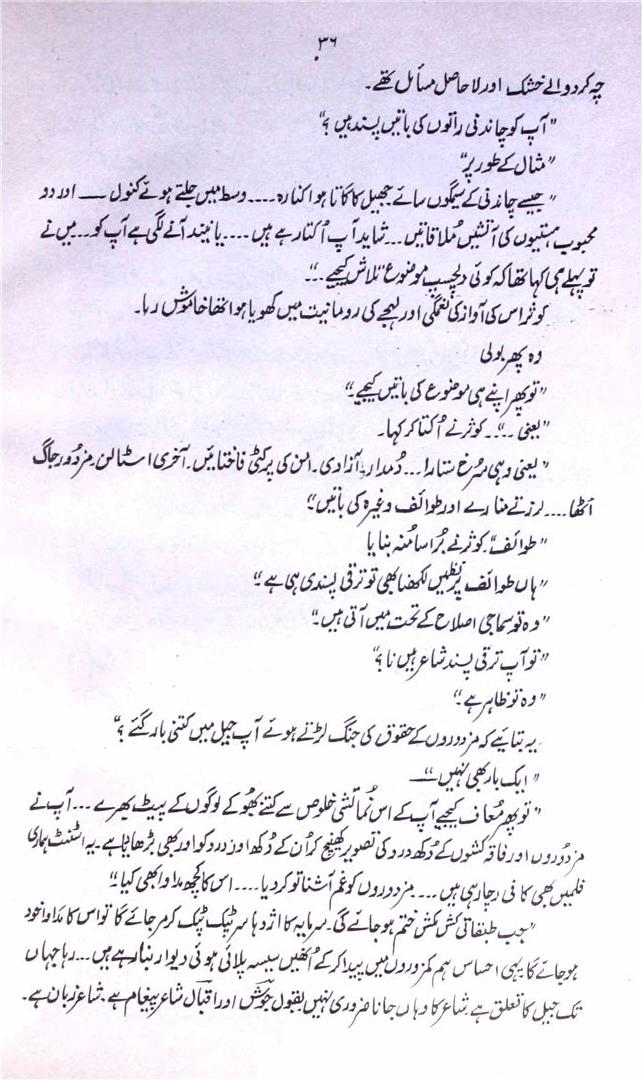 ۳۶
چہ کرد والے خشک اور لاحاصل مسائل تھے۔
"آپ کو چاندنی راتوں کی باتیں پسند ہیں؟"
"مثال کے طور پر"
"جیسے چاندنی کے سیگوں سائے جھیل کا گاتا ہوا کنارہ .... وسط میں جلتے ہوئے کنول — اور دو
محبوب ہستیوں کی آتشیں ملاقاتیں ... شاید آپ اُکتا رہے ہیں .... یا نیند آنے لگی ہے آپ کو ... میں نے
تو پہلے ہی کہا تھا کہ کوئی دلچسپ موضوع تلاش کیجیے ..."
کوثر اس کی آواز کی نغمگی اور لہجے کی رومانیت میں کھویا ہوا تھا خاموش رہا۔
وہ پھر بولی
"تو پھر اپنے ہی موضوع کی باتیں کیجیے۔"
"یعنی ..." کوثر نے اُکتا کر کہا۔
"یعنی وہی سُرخ ستارا ... دُمدار آزادی۔ امن کی پرکٹی فاختائیں۔ آخری اسٹالن۔ مزدور جاگ
اُٹھا .... لرزتے منارے اور طوائف وغیرہ کی باتیں۔"
"طوائف" کوثر نے بُرا سا مُنہ بنایا
"ہاں طوائف پر نظمیں لکھنا بھی تو ترقی پسندی ہی ہے"
"وہ تو سماجی اصلاح کے تحت میں آتی ہیں۔"
"تو آپ ترقی پسند شاعر ہیں نا؟"
"وہ تو ظاہر ہے۔"
یہ بتایئے کہ مزدوروں کے حقوق کی جنگ لڑتے ہوئے آپ جیل میں کتنی بار گئے؟"
"ایک بار بھی نہیں —"
"تو پھر مُعاف کیجیے آپ کے اس نُمائشی خلوص سے کتنے بھُوکے لوگوں کے پیٹ بھرے ... آپ نے
مزدُوروں اور فاقہ کشوں کے دُکھ درد کی تصویر کھینچ کر اُن کے دُکھ اور درد کو اور بھی بڑھایا ہے۔ یہ اسٹنٹ ہماری
فلمیں بھی کافی رچا رہی ہیں .... مزدوروں کو غم آشنا تو کر دیا .... اس کا کچھ مداوا بھی کیا۔"
"جب طبقاتی کش مکش ختم ہو جائے گی۔ سرمایہ کا اژدہا سر ٹپک ٹپک کر مر جائے گا تو اس کا مداوا خود
ہو جائے گا یہی احساس ہم کمزوروں میں پیدا کر کے اُنھیں سیسہ پلائی ہوئی دیوار بنا رہے ہیں ... رہا جہاں
تک جیل کا تعلق ہے شاعر کا وہاں جانا ضروری نہیں بقول جوشؔ اور اقبالؔ شاعر پیغام ہے۔ شاعر زبان ہے۔